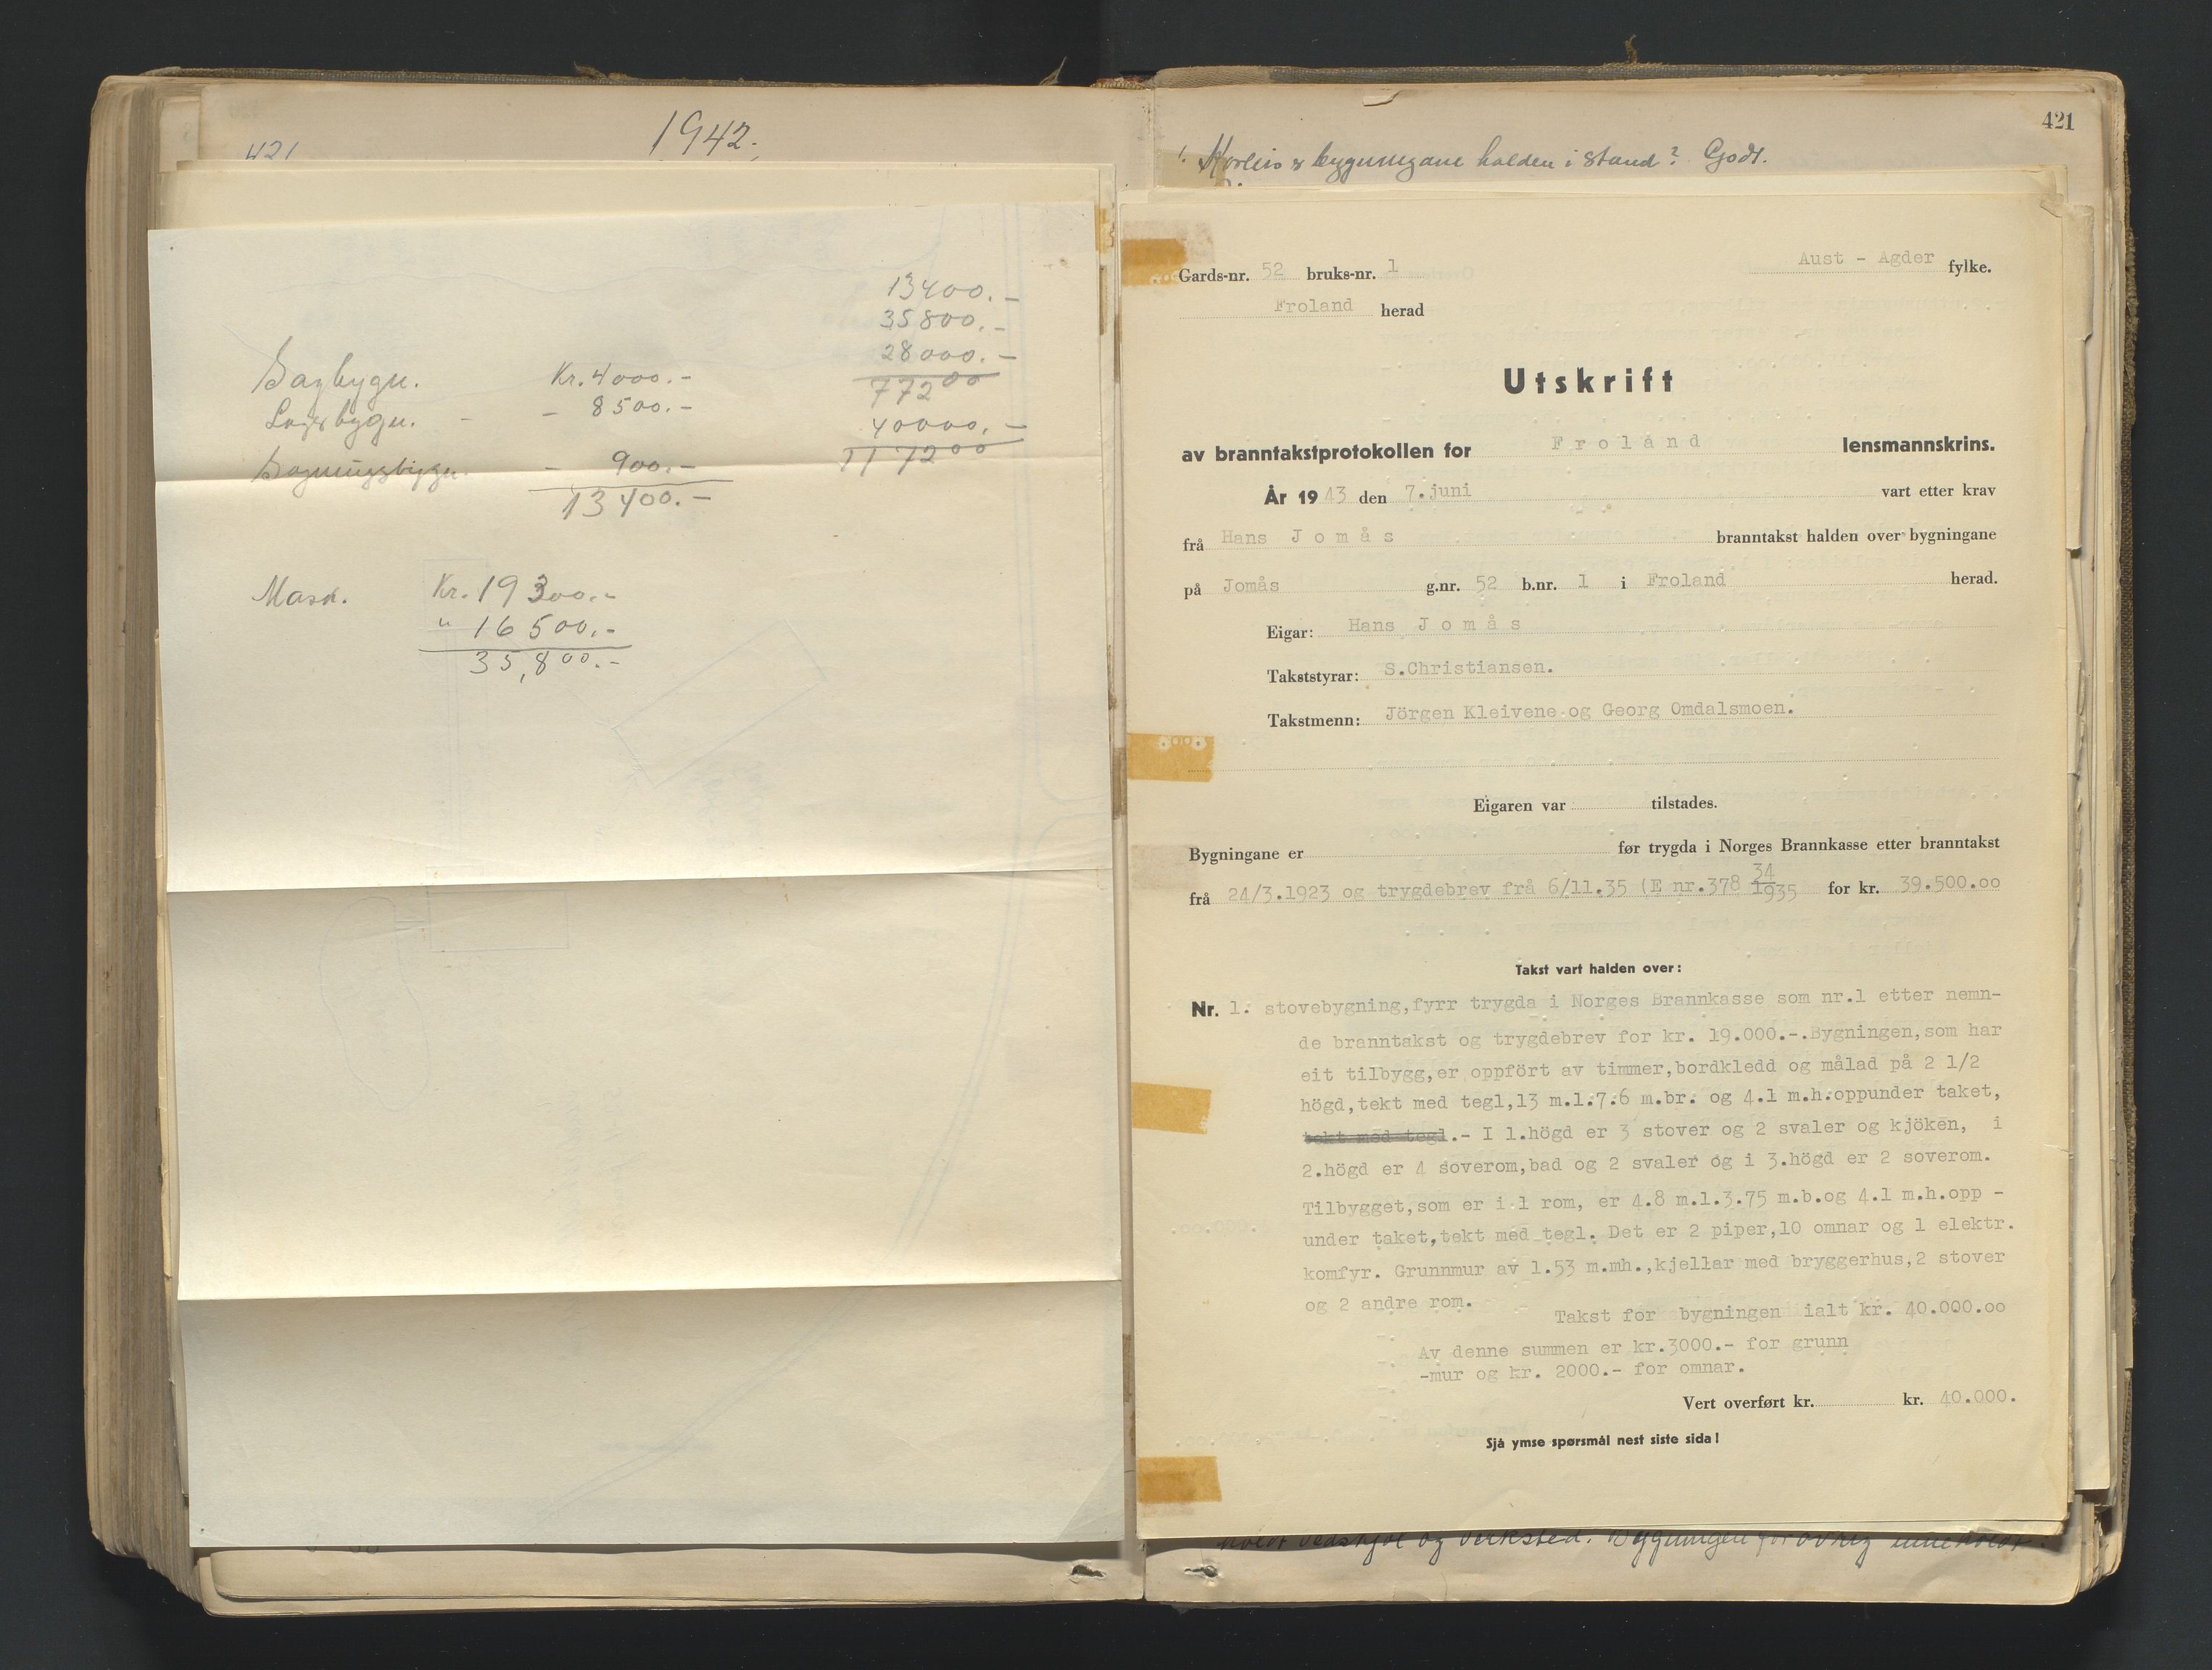 421
1942.
13400.-
35800.-
28000.-
77200
40000.-
117200
Sagbygn. Kr. 4000.-
Lagerbygn. - - 8500.-
- 900.-
13400.-
Mask. Kr. 19300.-
" 16500.-
35,800.-
421
1. Korleis er bygningane halden i stand? Godt.
Gards-nr. 52 bruks-nr. 1
Aust - Agder fylke.
Froland herad
Utskrift
av branntakstprotokollen for Froland lensmannskrins.
År 1943 den 7.juni vart etter krav
frå Hans Jomås branntakst halden over bygningane
på Jomås g.nr. 52 b.nr. 1 i Froland herad.
Eigar: Hans Jomås
Takststyrar: S.Christiansen.
Takstmenn: Jörgen Kleivene og Georg Omdalsmoen.
Eigaren var tilstades.
Bygningane er før trygda i Norges Brannkasse etter branntakst
frå 24/3.1923 og trygdebrev frå 6/11.35 (E nr.378 34/1935 for kr. 39.500.oo
Takst vart halden over:
Nr. 1. stovebygning,fyrr trygda i Norges Brannkasse som nr.1 etter nemn-
de branntakst og trygdebrev for kr. 19.000.-.Bygningen,som har
eit tilbygg,er oppfört av timmer,bordkledd og målad på 2 1/2
högd,tekt med tegl,13 m.l.7.6 m.br. og 4.1 m.h.oppunder taket,
tekt med tegl.- I 1.högd er 3 stover og 2 svaler og kjöken, i
2.högd er 4 soverom,bad og 2 svaler og i 3.högd er 2 soverom.
Tilbygget,som er i 1 rom, er 4.8 m.l.3.75 m.b.og 4.1 m.h.opp -
under taket,tekt med tegl. Det er 2 piper,10 omnar og 1 elektr.
komfyr. Grunnmur av 1.53 m.mh.,kjellar med bryggerhus,2 stover
og 2 andre rom.
Takst for bygningen ialt kr. 40.000.oo
Av denne summen er kr.3000.- for grunn
-mur og kr. 2000.- for omnar.
Vert overført kr. kr. 40.000.
Sjå ymse spørsmål nest siste sida!
vedskjul og verksted. Bygningen forøvrig